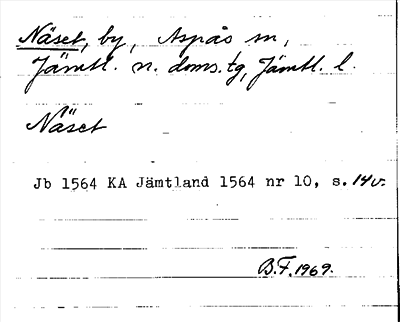 Näset, by, Aspås sn,
Jämtl. n. doms.tg, Jämtl. l.
Näset
Jb 1564 KA Jämtland 1564 nr 10, s. 14v.
B.F. 1969.